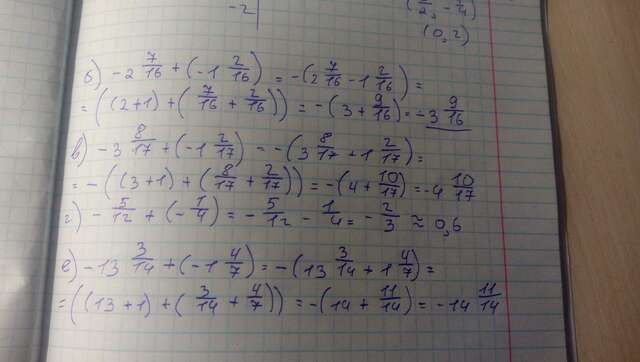 -2
(1/2, -1/4)
(0,2)
б) -2 7/16 + (-1 2/16) = -(2 7/16 - 1 2/16) =
= ((2+1) + (7/16 + 2/16)) = -(3 + 9/16) = -3 9/16
в) -3 8/17 + (-1 2/17) = -(3 8/17 + 1 2/17) =
= -((3+1) + (8/17 + 2/17)) = -(4 + 10/17) = -4 10/17
г) -5/12 + (-1/4) = -5/12 - 1/4 = -2/3 ≈ 0,6
е) -13 3/14 + (-1 4/7) = -(13 3/14 + 1 4/7) =
= ((13+1) + (3/14 + 4/7)) = -(14 + 11/14) = -14 11/14